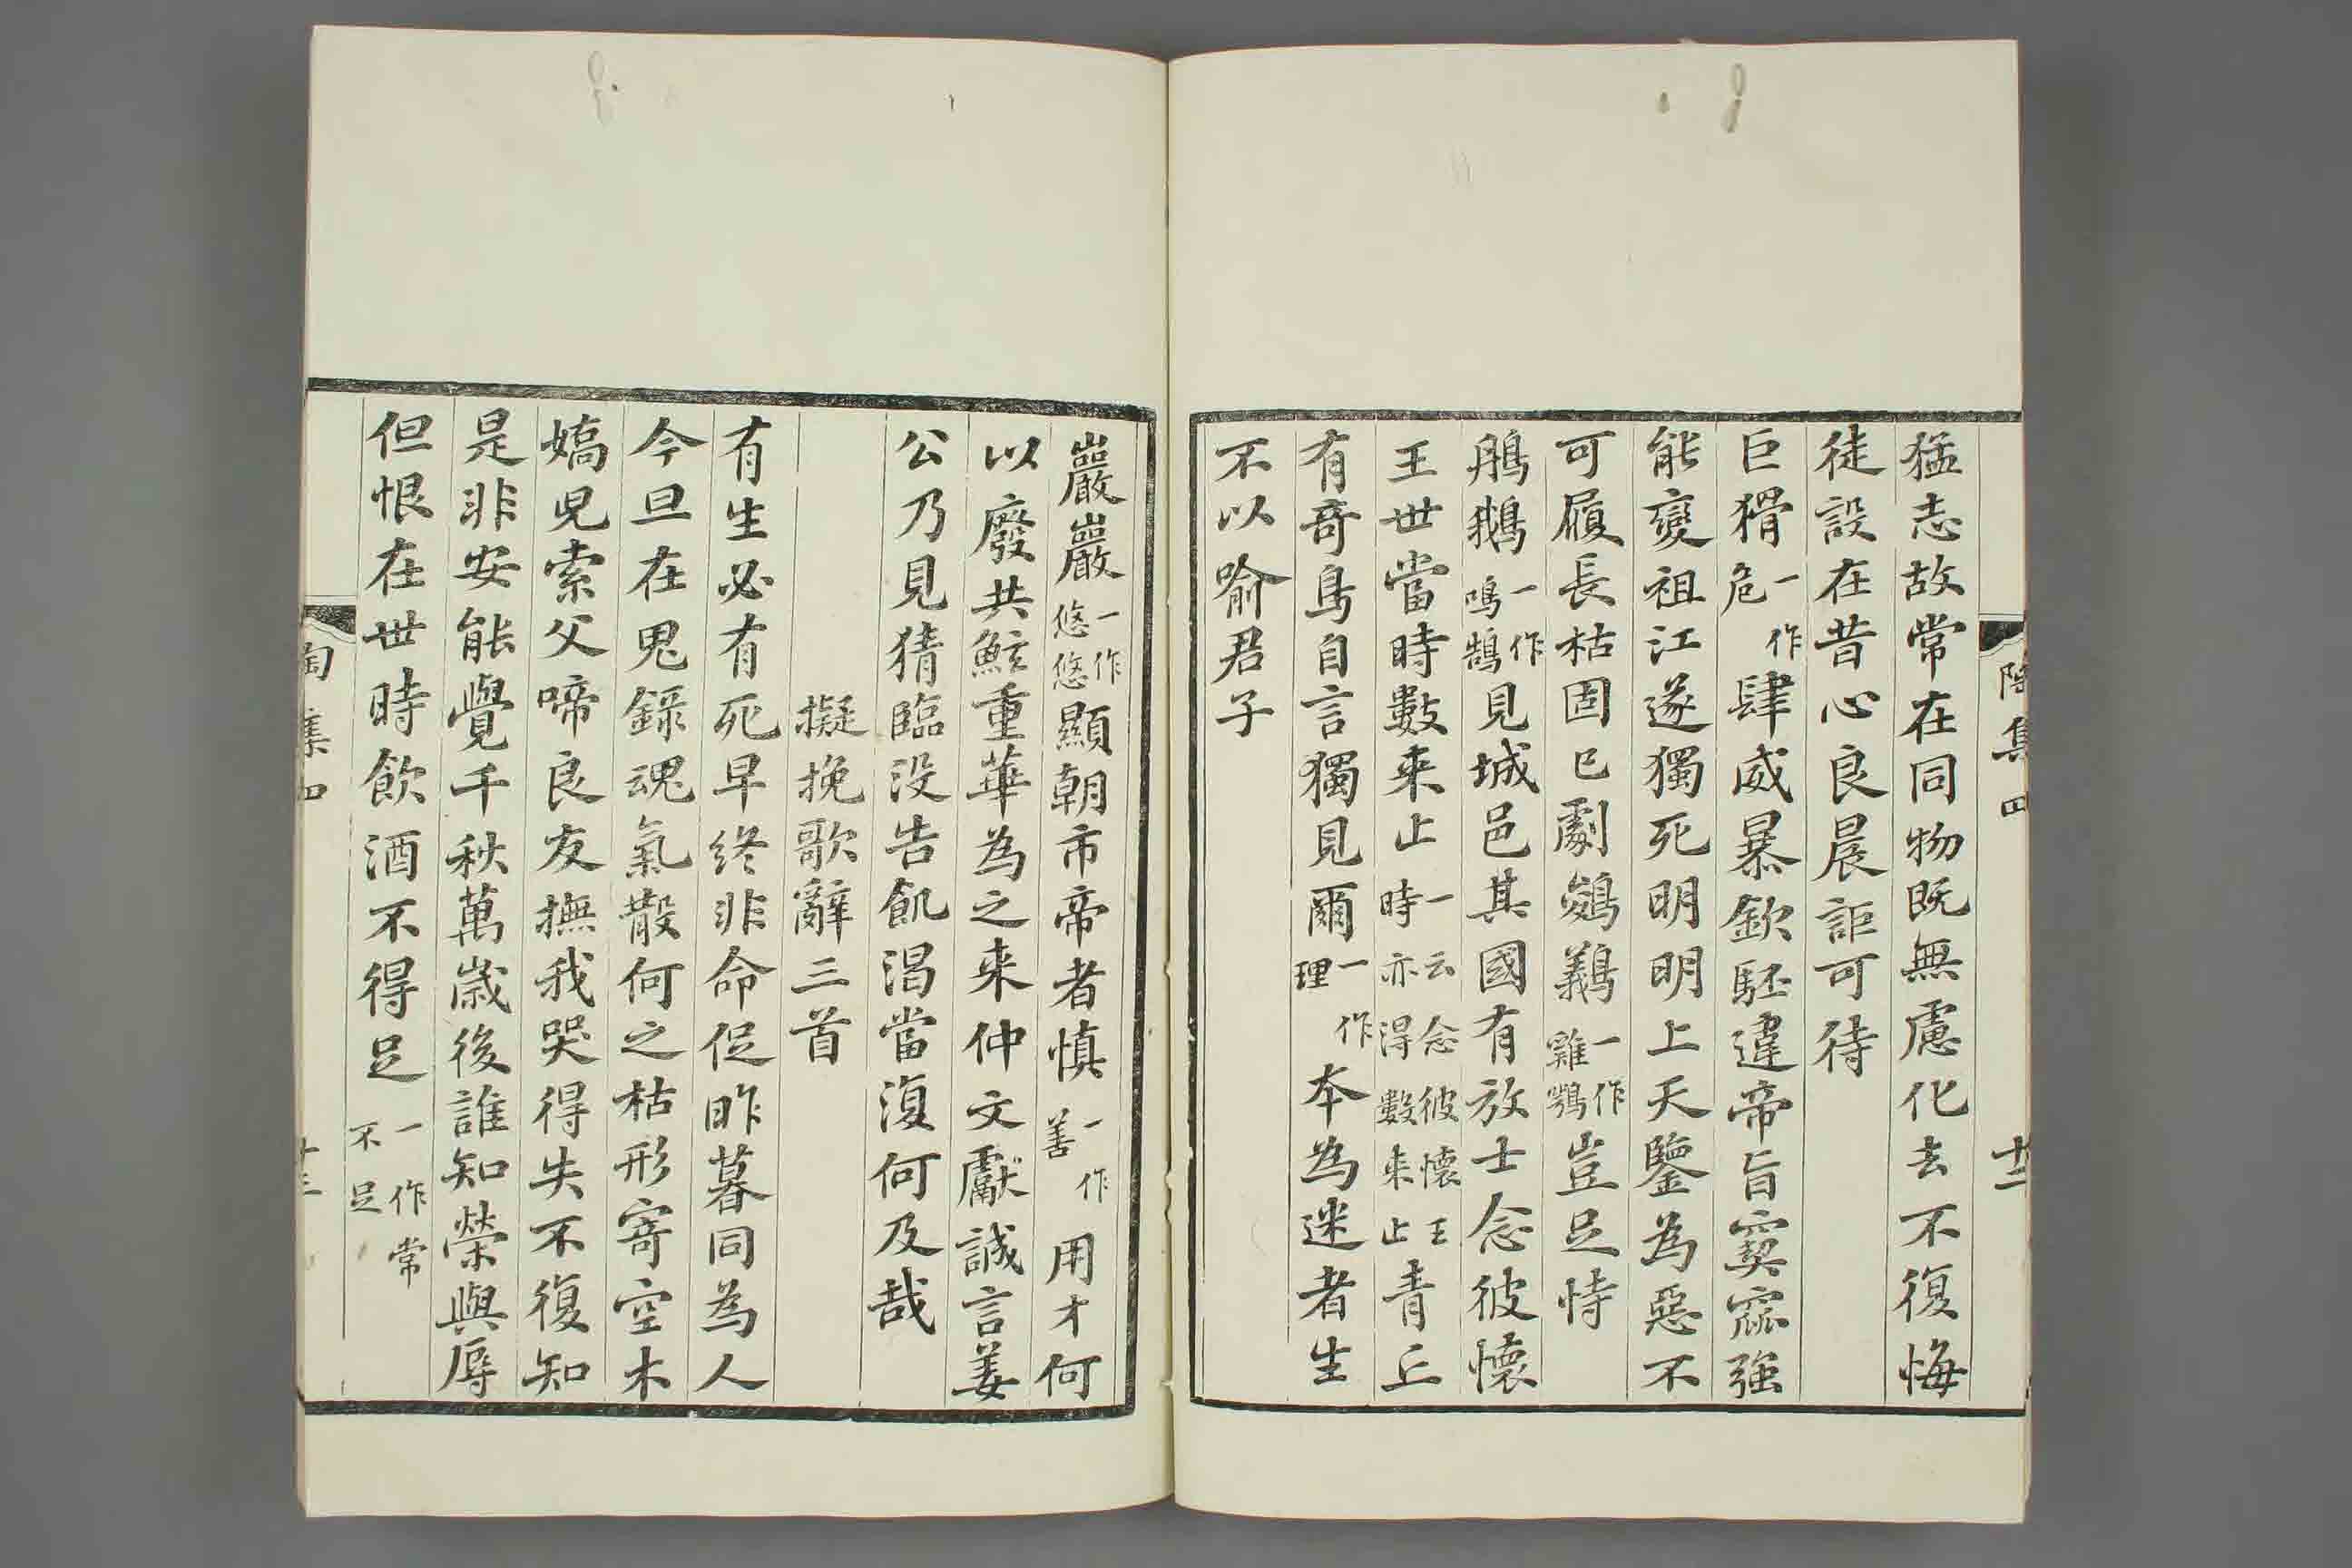 陶集四 十二
猛志故常在同物既無慮化去不復悔
徒設在昔心良晨詎可待
巨猾一作危肆威暴欽䲹違帝旨窫窳強
能變祖江遂獨死明明上天鑒為惡不
可履長枯固已劇鵕鵜一作雞鶚豈足恃
鵃鵝一作鳴鵠見城邑其國有放士念彼懷
王世當時數来止一云念彼懷王時亦得數来止青丘
有奇鳥自言獨見爾一作理夲為迷者生
不以喻君子
巖巖一作悠悠顯朝市帝者慎一作善用才何
以廢共鮌重華為之来仲文獻誠言姜
公乃見猜臨没告飢渴當復何及哉
擬挽歌辭三首
有生必有死早終非命促昨暮同為人
今旦在鬼錄魂氣散何之枯形寄空木
嬌兒索父啼良友撫我哭得失不復知
是非安能覺千秋萬歲後誰知榮與辱
但恨在世時飲酒不得足一作常不足
陶集四 十三